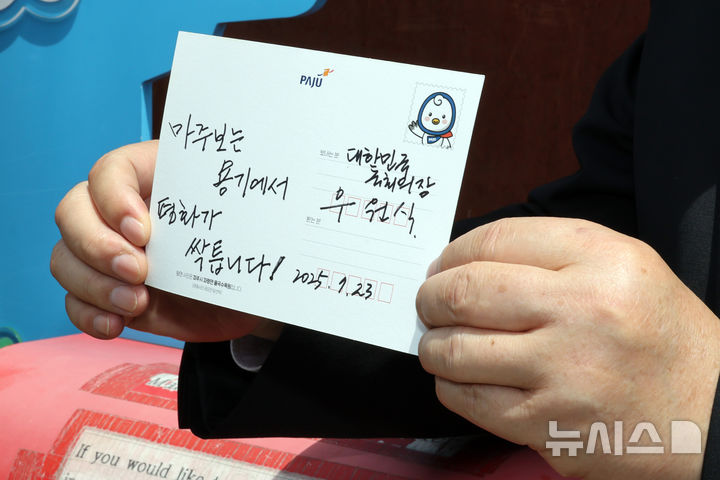 PAJU
마주보는
용기에서
평화가
싹틉니다!
보내는 분
대한민국
국회의장
우 원 식.
받는 분
2025. 7. 23
If you would like
뉴시스